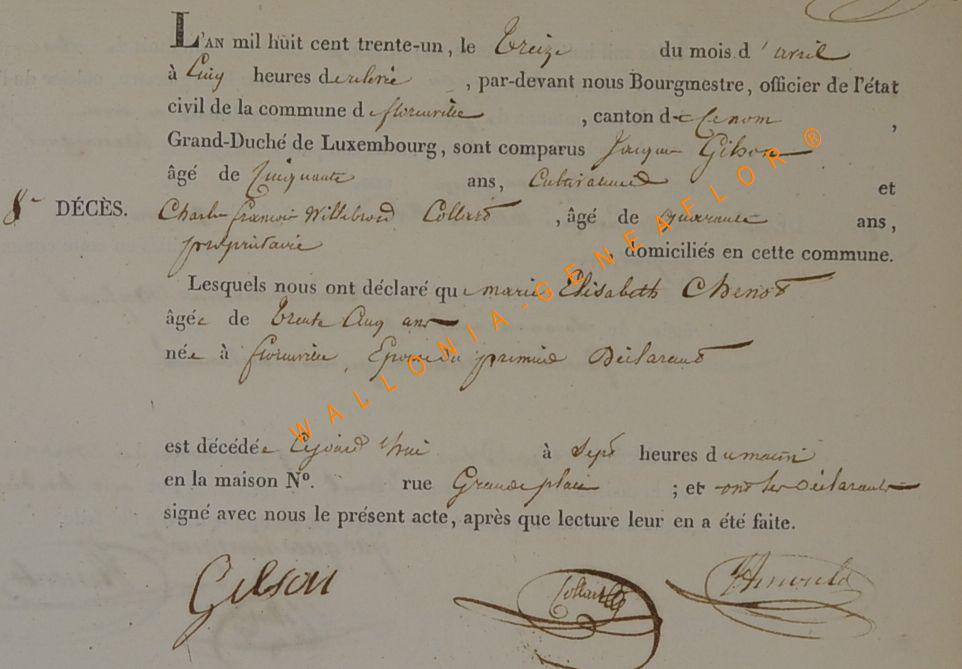 L'AN mil huit cent trente-un, le Treize du mois d'avril
à Cinq heures de relevée, par-devant nous Bourgmestre, officier de l'état
civil de la commune de florenville, canton d
Grand-Duché de Luxembourg, sont comparus Jacques Gibson
âgé de Cinquante ans, Cabaretier et
8e DÉCÈS. Charles françois Willebrord Collard, âgé de quarante ans,
propriétaire domiciliés en cette commune.
Lesquels nous ont déclaré que marie Elisabeth Chenot
âgée de trente Cinq ans
née à florenville, Epouse du premier Déclarant
est décédée aujourd'hui à sept heures du matin
en la maison N°. rue Grande place ; et ont les Déclarants
signé avec nous le présent acte, après que lecture leur en a été faite.
Gibson Collard
WALLONIA-GENEAFLOR®